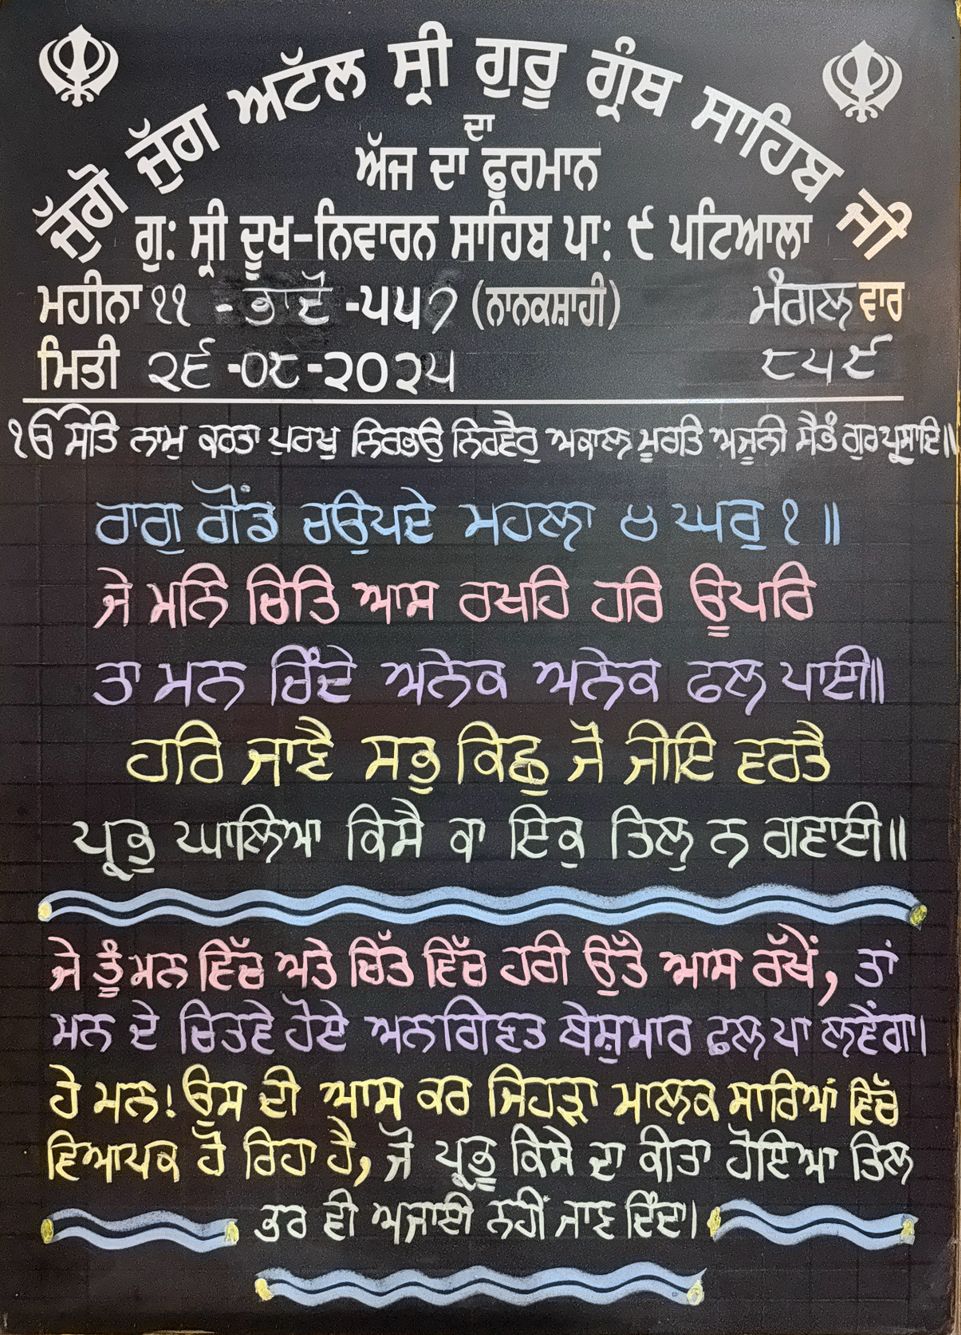 ਜੁੱਗੋ ਜੁੱਗ ਅਟੱਲ ਸ੍ਰੀ ਗੁਰੂ ਗ੍ਰੰਥ ਸਾਹਿਬ ਜੀ
ਦਾ
ਅੱਜ ਦਾ ਫੁਰਮਾਨ
ਗੁ: ਸ੍ਰੀ ਦੂਖ-ਨਿਵਾਰਨ ਸਾਹਿਬ ਪਾ: ੯ ਪਟਿਆਲਾ
ਮਹੀਨਾ ੧੧ -ਭਾਦੋਂ -੫੫੭ (ਨਾਨਕਸ਼ਾਹੀ) ਮੰਗਲਵਾਰ
ਮਿਤੀ ੨੬ -੦੮ -੨੦੨੫ ੮੫੯
ੴ ਸਤਿ ਨਾਮੁ ਕਰਤਾ ਪੁਰਖੁ ਨਿਰਭਉ ਨਿਰਵੈਰੁ ਅਕਾਲ ਮੂਰਤਿ ਅਜੂਨੀ ਸੈਭੰ ਗੁਰਪ੍ਰਸਾਦਿ॥
ਰਾਗੁ ਗੋਂਡ ਚਉਪਦੇ ਮਹਲਾ ੪ ਘਰੁ ੧ ॥
ਜੇ ਮਨਿ ਚਿਤਿ ਆਸ ਰਖਹਿ ਹਰਿ ਊਪਰਿ
ਤਾ ਮਨ ਚਿੰਦੇ ਅਨੇਕ ਅਨੇਕ ਫਲ ਪਾਈ॥
ਹਰਿ ਜਾਣੈ ਸਭੁ ਕਿਛੁ ਜੋ ਜੀਇ ਵਰਤੈ
ਪ੍ਰਭੁ ਘਾਲਿਆ ਕਿਸੈ ਕਾ ਇਕੁ ਤਿਲੁ ਨ ਗਵਾਈ॥
ਜੇ ਤੂੰ ਮਨ ਵਿੱਚ ਅਤੇ ਚਿੱਤ ਵਿੱਚ ਹਰੀ ਉੱਤੇ ਆਸ ਰੱਖੇਂ, ਤਾਂ
ਮਨ ਦੇ ਚਿਤਵੇ ਹੋਏ ਅਨਗਿਣਤ ਬੇਸ਼ੁਮਾਰ ਫਲ ਪਾ ਲਵੇਂਗਾ।
ਹੇ ਮਨ! ਉਸ ਦੀ ਆਸ ਕਰ ਜਿਹੜਾ ਮਾਲਕ ਸਾਰਿਆਂ ਵਿੱਚ
ਵਿਆਪਕ ਹੋ ਰਿਹਾ ਹੈ, ਜੋ ਪ੍ਰਭੂ ਕਿਸੇ ਦਾ ਕੀਤਾ ਹੋਇਆ ਤਿਲ
ਭਰ ਵੀ ਅਜਾਈ ਨਹੀਂ ਜਾਣ ਦਿੰਦਾ।